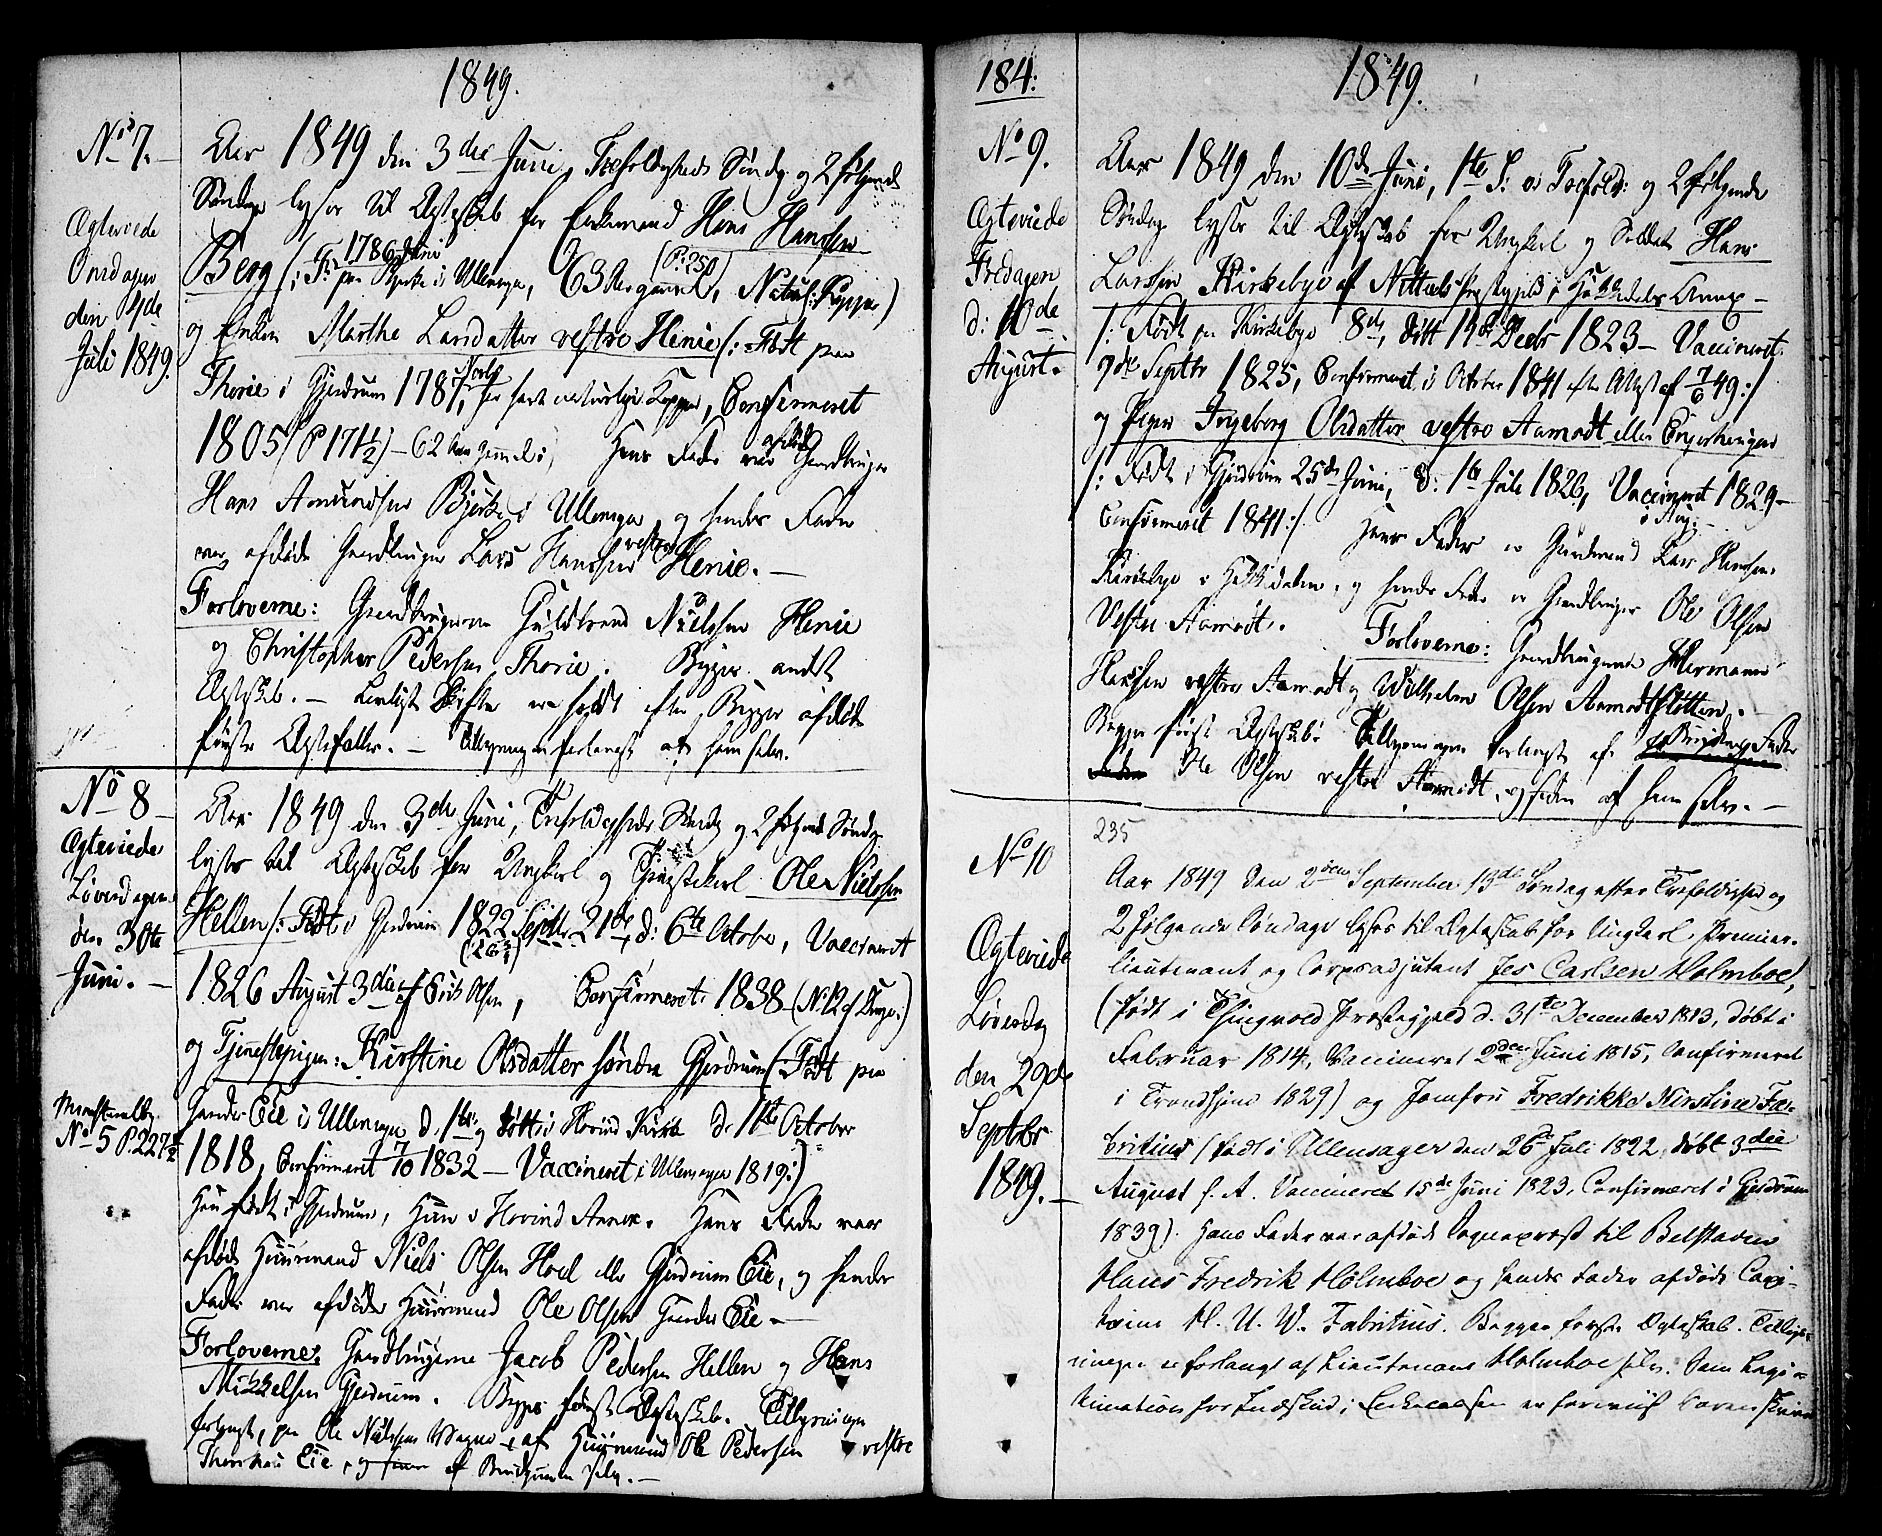 1849.
No 7.
Ægteviede
Onsdagen
den 4de
Juli 1849.
Aar 1849 den 3die Juni, Trefoldigheds Søndg og 2 følgende
Søndage lyses til Ægteskab for Enkemand Hans Hanssen
Berg (: F: 1786 Juni paa Bjerke i Ullensager, 63 Aar gammel, (P. 250) Naturl: Kopper)
og Enken Marthe Larsdatter vestre Henie (: Født paa
Thorie i Gjerdrum 1787, har havt naturlige Kopper, Confirmeret
1805 (P 171½) – 62 Aar gammel:) Hans Fader var afdøde Gaardbruger
Hans Amundsen Bjerke i Ullensager, og hendes Fader
var afdøde Gaardbruger Lars Hanssen vestre Henie. –
Forloverne: Gaardbrugerne Guldbrand Nielssen Henie
og Christopher Pedersen Thorie. Begges andet
Ægteskab. – Lovligt Skifte er holdt efter Begges afdøde
første Ægtefæller. – Tillysningen forlangt af ham selv.
No 8
Ægteviede
Løverdagen
den 30te
Juni. –
No 5 P. 227½
Aar 1849 den 3die Juni, Trefoldigheds Søndg og 2 følgende Søndge
lyses til Ægteskab for Ungkarl og Tjenestekarl Ole Nielssen
Hellen (: Født i Gjerdrum 1822 Septbr 21de, d: 6te October, Vaccineret
1826 August 3die af Erik Olsen, Confirmeret 1838 (No 12 af Drenge.)
og Tjenestepigen: Kirstine Olsdatter søndre Gjerdrum (Født paa
Hander Eie i Ullensager d. 1te og døbt i Hovind Kirke d. 11te October
1818, Confirmeret 7/10 1832 – Vaccineret i Ullensager 1819:)
Han født i Gjerdrum, Hun i Hovind Annex. Hans Fader var
afdøde Huusmand Niels Olsen Hoel eller Gjerdrum Eie, og hendes
Fader var afdøde Huusmand Ole Olsen Hander Eie. –
Forloverne: Gaardbrugerne Jacob Pedersen Hellen og Hans
Mikkelsen Gjerdrum. Begges første Ægteskab. Tillysningen
forlangt, paa Ole Nielssens Vegne, af Huusmand Ole Pedersen vestre
Eie, af Brudgommen selv. –
184:
1849.
No 9.
Ægteviede
Fredagen
d: 10de
August.
Aar 1849 den 10de Juni, 1te S. e. Trefold: og 2 følgende
Søndag lyses til Ægteskab for Ungkarl og Soldat Hans
Larssen Kirkebye af Nittedals Præstegjeld i Hakkedals Annex –
/: Født paa Kirkebye 8de, døbt 19de Decbr 1823 – Vaccineret
7de Septbr 1825, Confirmeret i October 1841 efter Attest af 7/6 49:/
og Pigen Ingeborg Olsdatter vestre Aamodt eller
/: Født i Gjerdrum 25de Juni, d: 16 Juli 1826, Vaccineret 1829 –
Confirmeret 1841:/. Hans Fader er Gaardmand Lars Hanssen
Kirkebye i Hakkedalen, og hendes Fader er Gaardbruger Ole Olsen
Vestre Aamodt. Forloverne: Gaardbrugerne Hermann
Hansen vestre Aamodt og Wilhelm Olsen Aamodtslotten. –
Begges første Ægteskab. Tillysningen forlangt af Brudens Fader
Ole Olsen vestre Aamodt, og siden af ham selv. –
No 10
Ægteviede
Løverdag
den 29de
Septbr
1849. –
235
Aar 1849 den 2den September 13de Søndag efter Trefoldighed og
2 følgende Søndage lyses til Ægteskab for Ungkarl, Premier-
lieutenant og Corpsadjutant Jes Carlsen Holmboe,
(født i Thingvold Præstegjeld d. 31te December 1813, døbt i
Februar 1814, Vaccineret 2den Juni 1815, Confirmeret
i Trondhjem 1829) og Jomfru Fredrikke Kirstine Fa-
britius (født i Ullensager den 26de Juli 1822, døbt 3die
August s. A. Vaccineret 15de Juni 1823, Confirmeret i Gjerdrum
1839). Hans Fader var afdøde Sognepræst til Bolstaden
Hans Fredrik Holmboe og hendes Fader afdøde Capi-
taine M. U. W. Fabritius. Begges første Ægteskab. Tillys-
ningen er forlangt af Lieutenant Holmboe selv. Som Legi-
timation for Indskud i Enkecassen er foreviist